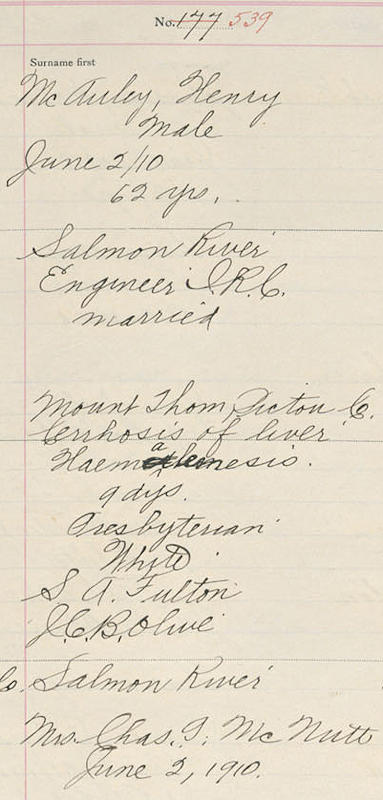 No. 177 539
Surname first
McAuley, Henry
Male
June 2/10
62 yrs.
Salmon River
Engineer I.R.C.
married
Mount Thom, Pictou C.
Cirrhosis of liver
Haematemesis.
9 dys.
Presbyterian
White
S. A. Fulton
J.C.B. Olive
Co. Salmon River
Mrs. Chas. I. McNutt
June 2, 1910.